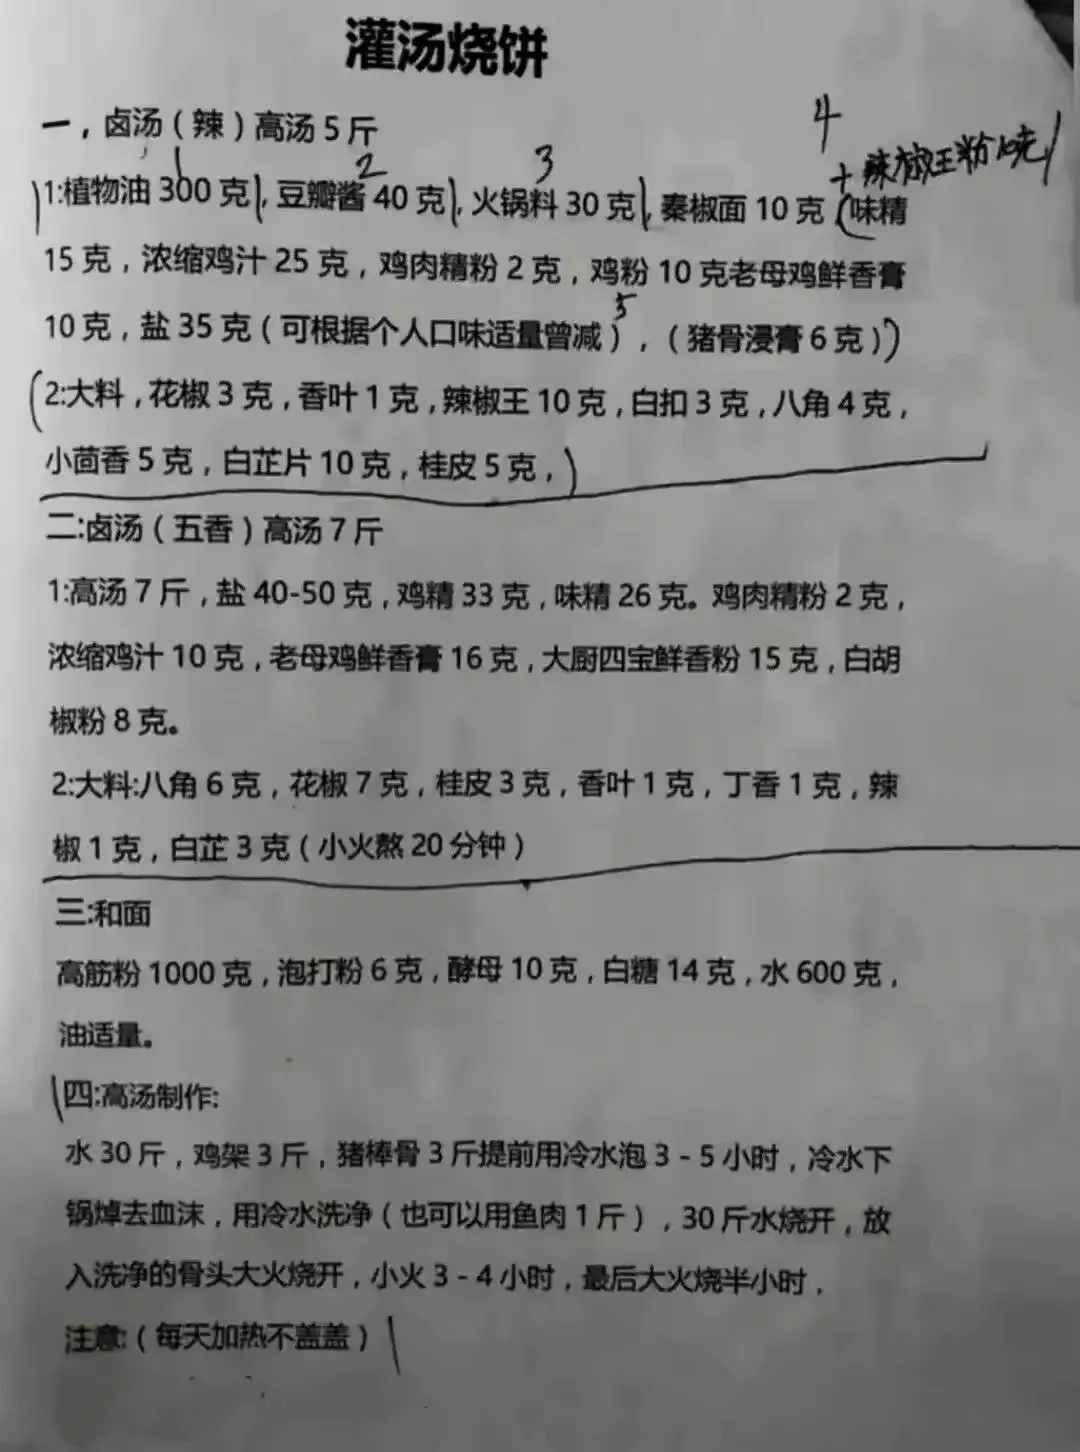 灌汤烧饼
一，卤汤（辣）高汤5斤
1 2 3 4
+辣椒王粉
1:植物油300克，豆瓣酱40克，火锅料30克，秦椒面10克（味精
15克，浓缩鸡汁25克，鸡肉精粉2克，鸡粉10克老母鸡鲜香膏
5
10克，盐35克（可根据个人口味适量曾减），（猪骨浸膏6克）)
(2:大料，花椒3克，香叶1克，辣椒王10克，白扣3克，八角4克，
小茴香5克，白芷片10克，桂皮5克，)
二:卤汤（五香）高汤7斤
1:高汤7斤，盐40-50克，鸡精33克，味精26克。鸡肉精粉2克，
浓缩鸡汁10克，老母鸡鲜香膏16克，大厨四宝鲜香粉15克，白胡
椒粉8克。
2:大料:八角6克，花椒7克，桂皮3克，香叶1克，丁香1克，辣
椒1克，白芷3克（小火熬20分钟）
三:和面
高筋粉1000克，泡打粉6克，酵母10克，白糖14克，水600克，
油适量。
四:高汤制作:
水30斤，鸡架3斤，猪棒骨3斤提前用冷水泡3-5小时，冷水下
锅焯去血沫，用冷水洗净（也可以用鱼肉1斤），30斤水烧开，放
入洗净的骨头大火烧开，小火3-4小时，最后大火烧半小时，
注意:（每天加热不盖盖）